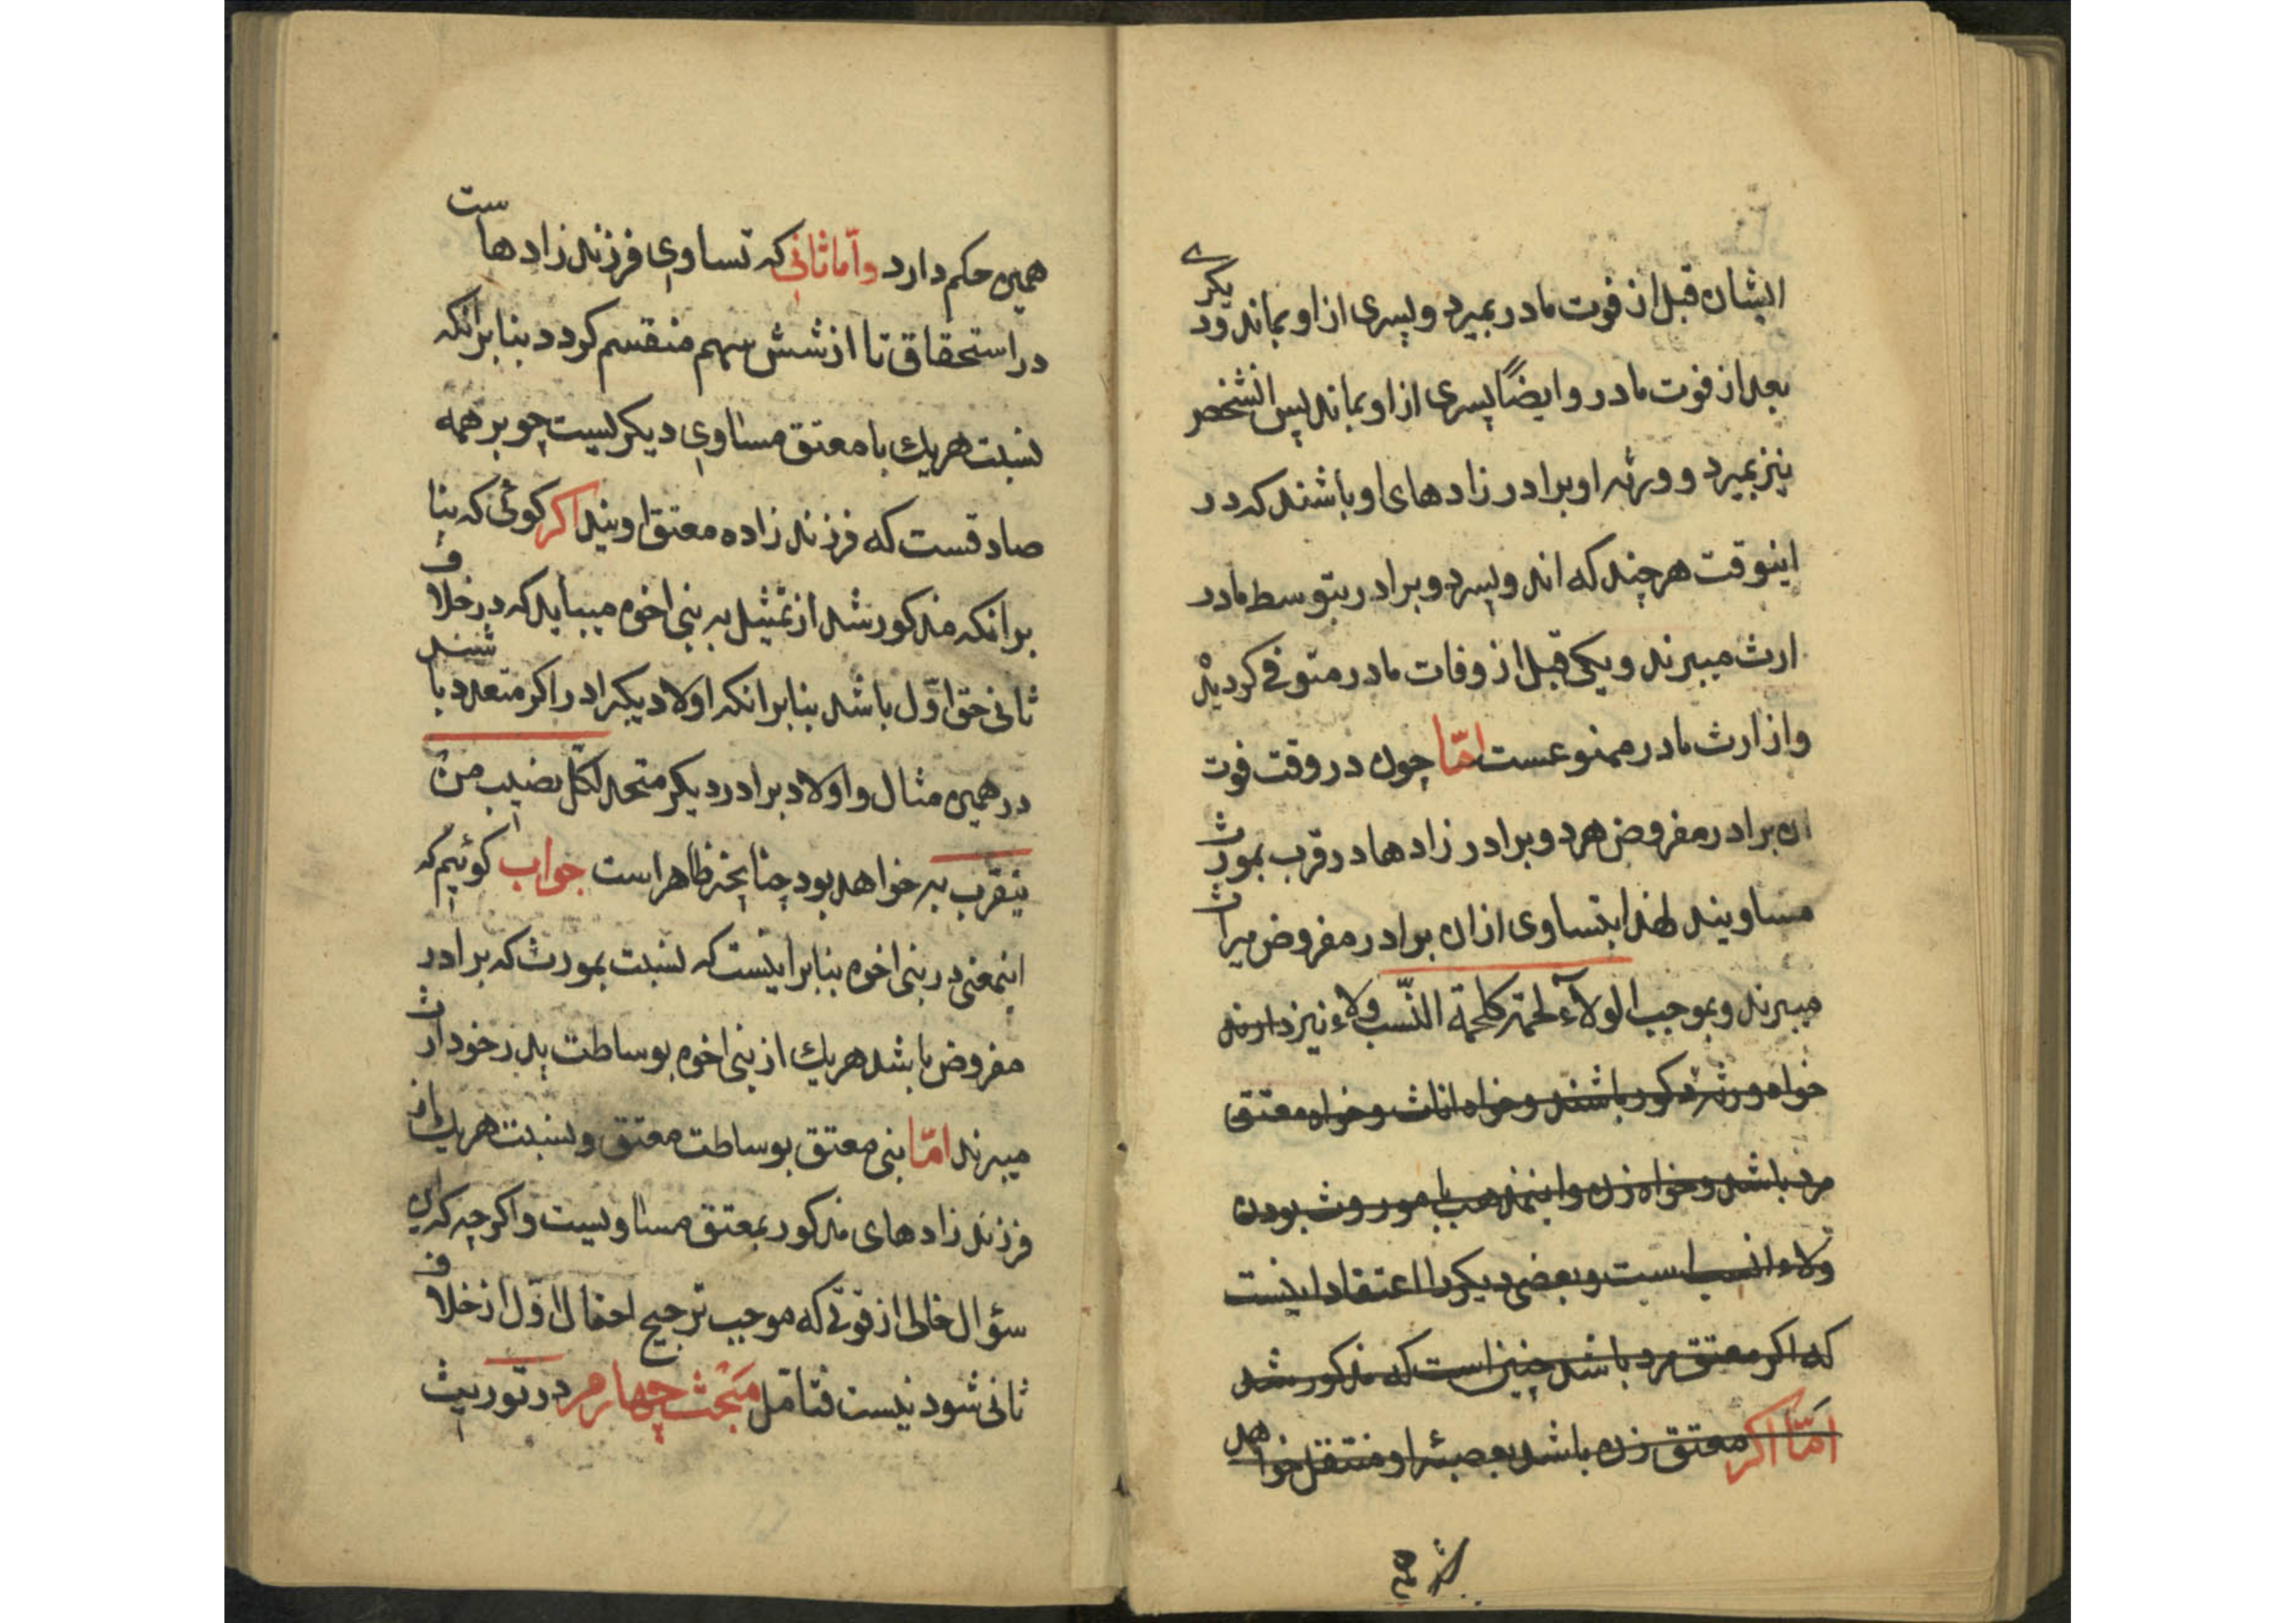 ایشان قبل از فوت مادر بمیرد و پسری از او بماند و دیگری
بعد از فوت مادر و ایضاً پسری از او بماند پس انشخص
نیز بمیرد و ورثه او برادر زادهای او باشند که در
اینوقت هرچند که اند و پسر دو برادر بتوسط مادر
ارث میبرند و یکی قبل از وفات مادر متوفی کردیده
و از ارث مادر ممنوعست امّا چون در وقت فوت
ان برادر مفروض هر دو برادر زادها در قرب بمورث
مساویند لهذا بتساوی ازان برادر مفروض میراث
میبرند و بموجب الولاء لحمة کلحمة النّسب ولاء نیز دارند
خواه ورثه مذکور باشند و خواه اناث و خواه معتق
مرد باشد و خواه زن و اینمذهب با موروث بودن
ولاء انسب است و بعضی دیکر را اعتقاد اینست
که اکر معتق مرد باشد چنین است که مذکور شد
امّا اکر معتق زن باشد بعصبهٔ او منتقل خواهد
همین حکم دارد و امّا ثانی که تساوی فرزند زادهاست
در استحقاق تا از شش سهم منقسم کردد بنابرانکه
نسبت هریک با معتق مساوی دیکریست چو بر همه
صادقست که فرزند زاده معتق اویند اکر کوئی که بنا
برانکه مذکور شد از تمثیل به بنی اخوه میباید که در خلاف
ثانی حق اوّل باشد بنابرانکه اولاد یکبرادر اکر متعدد باشند
در همین مثال و اولاد برادر دیکر متحد لکل نصیب من
یتقرب به خواهد بود چنانچه ظاهر است جواب کوئیم که
اینمعنی در بنی اخوه بنابر اینست که نسبت بمورث که برادر
مفروض باشد هریک از بنی اخوه بوساطت پدر خود ارث
میبرند امّا بنی معتق بوساطت معتق و نسبت هریک از
فرزند زادهای مذکور بمعتق مساویست و اکرچه که این
سؤال خالی از قوتی که موجب ترجیح احتمال اوّل از خلاف
ثانی شود نیست فتامل مبحث چهارم در توریث